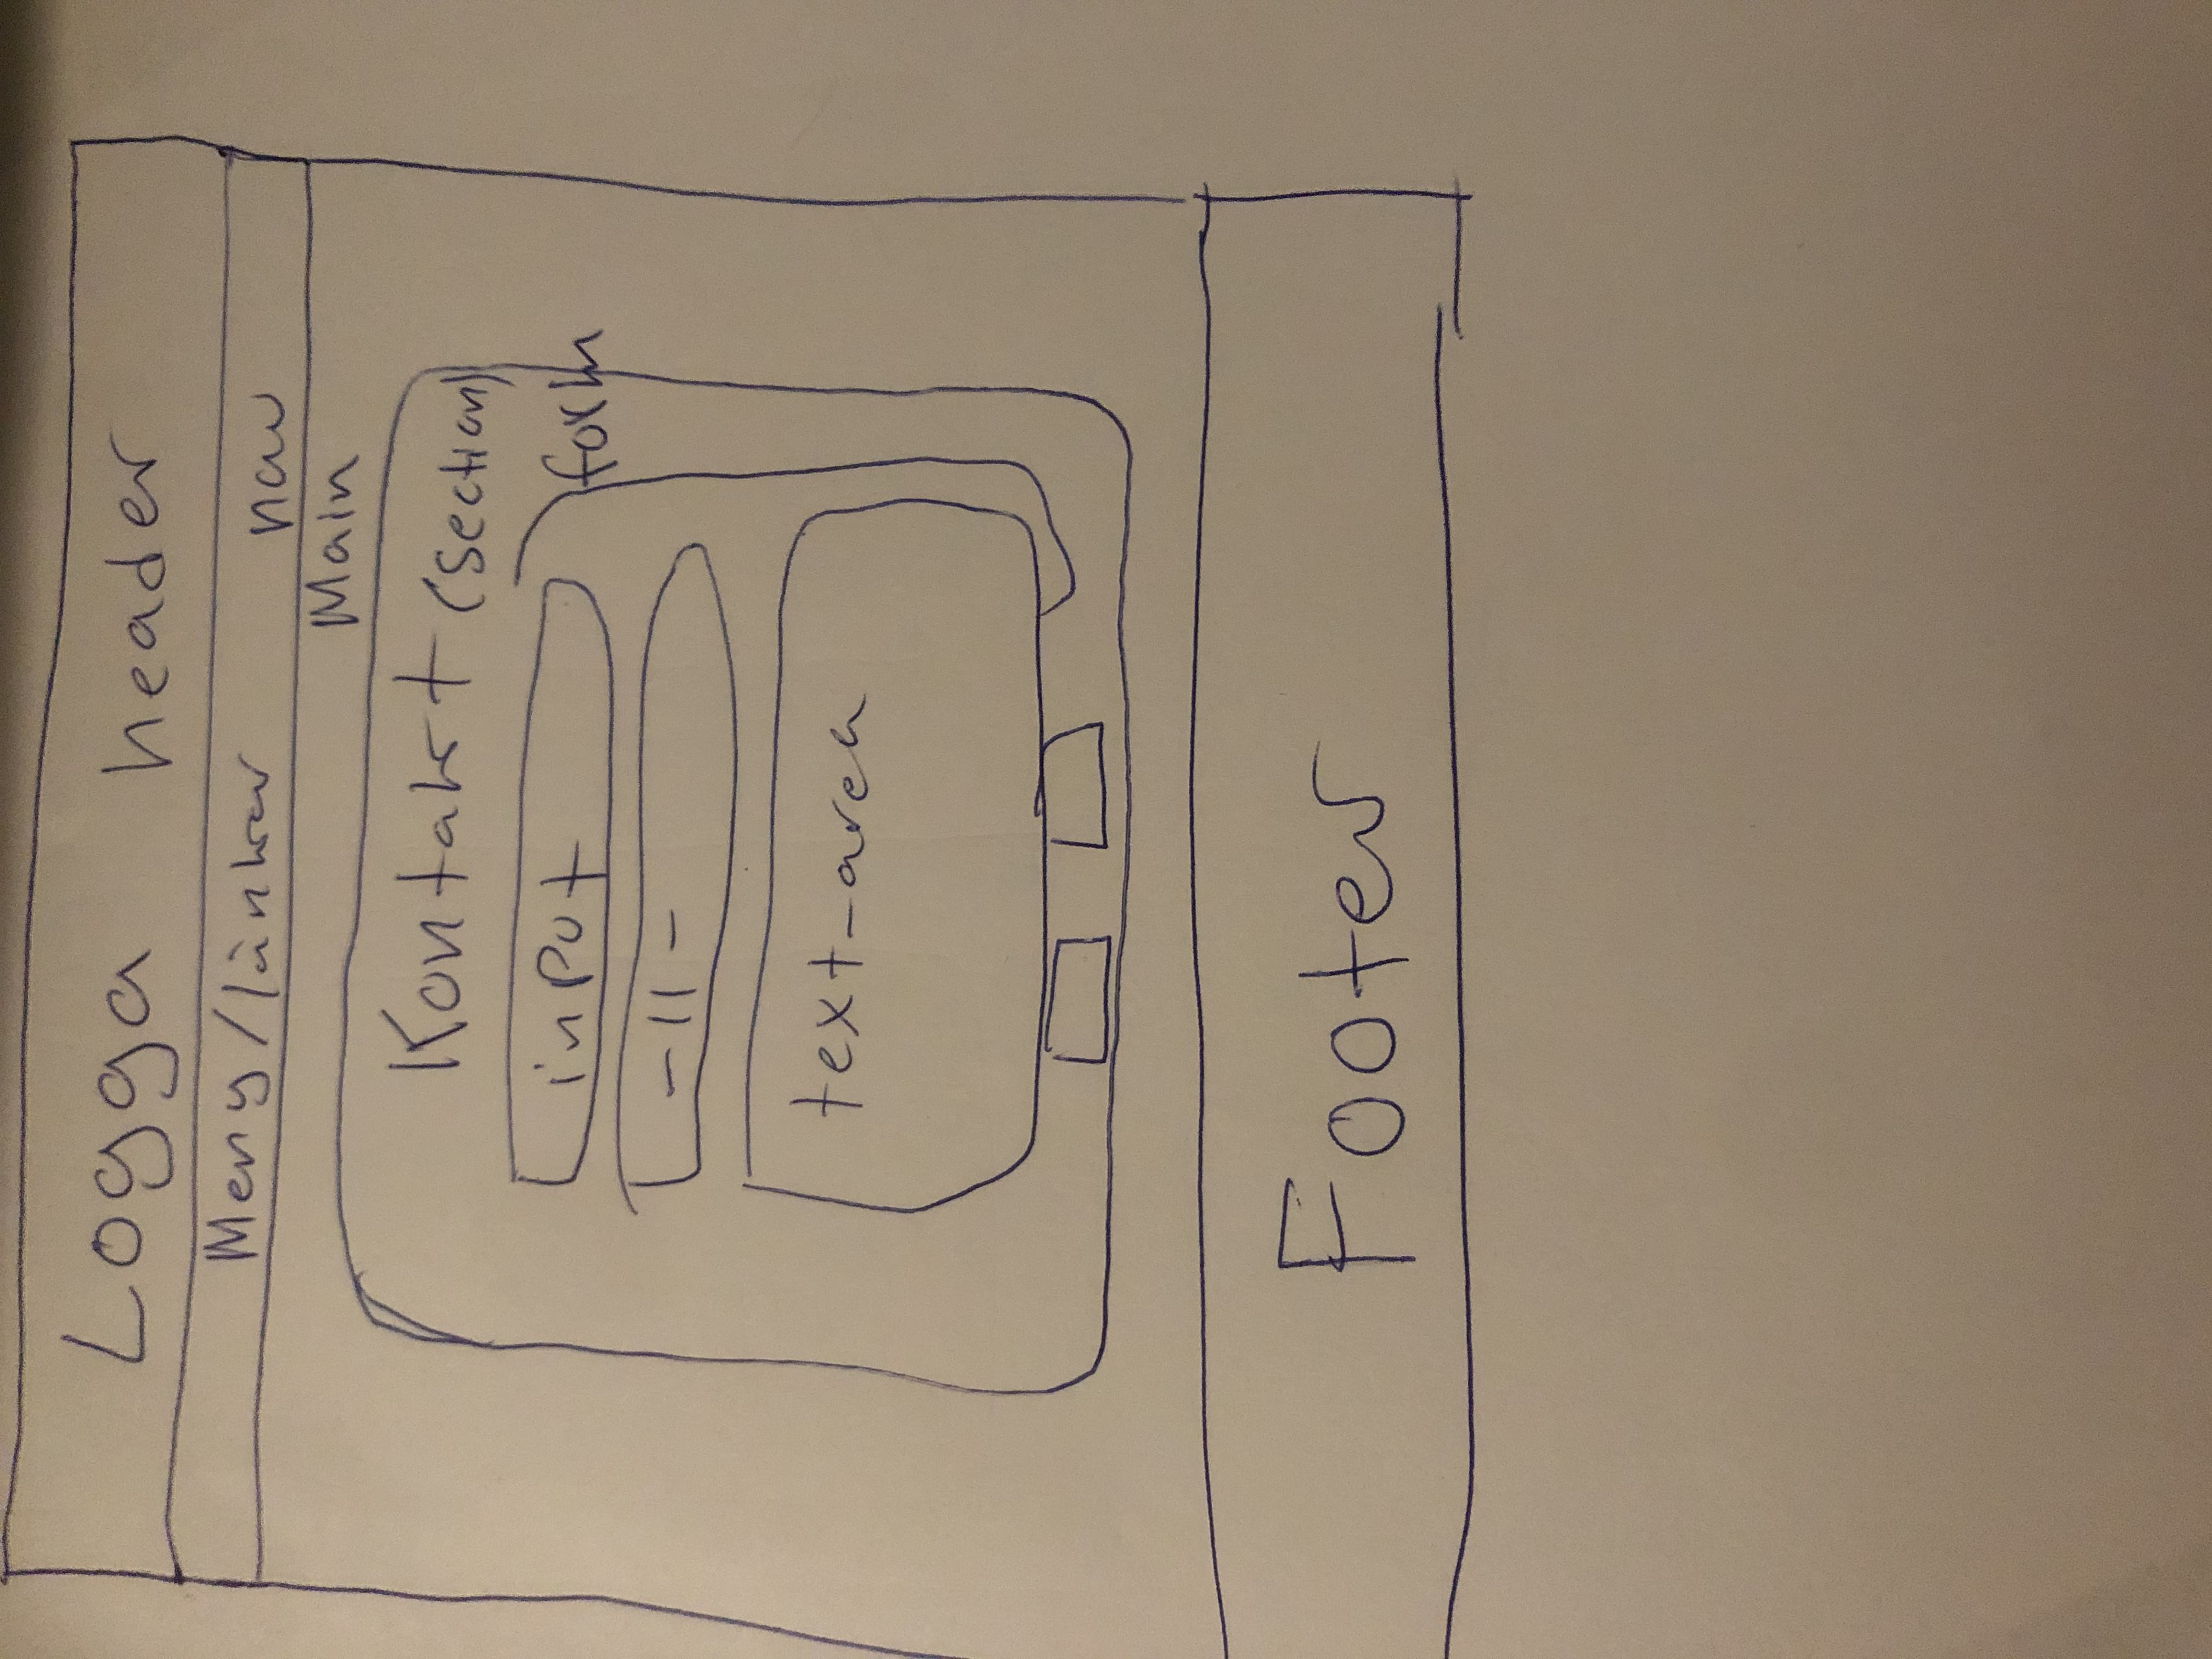 Logga header
Meny/länkar nav
Main
Kontakt (section)
input form
-11-
text-area
Footer